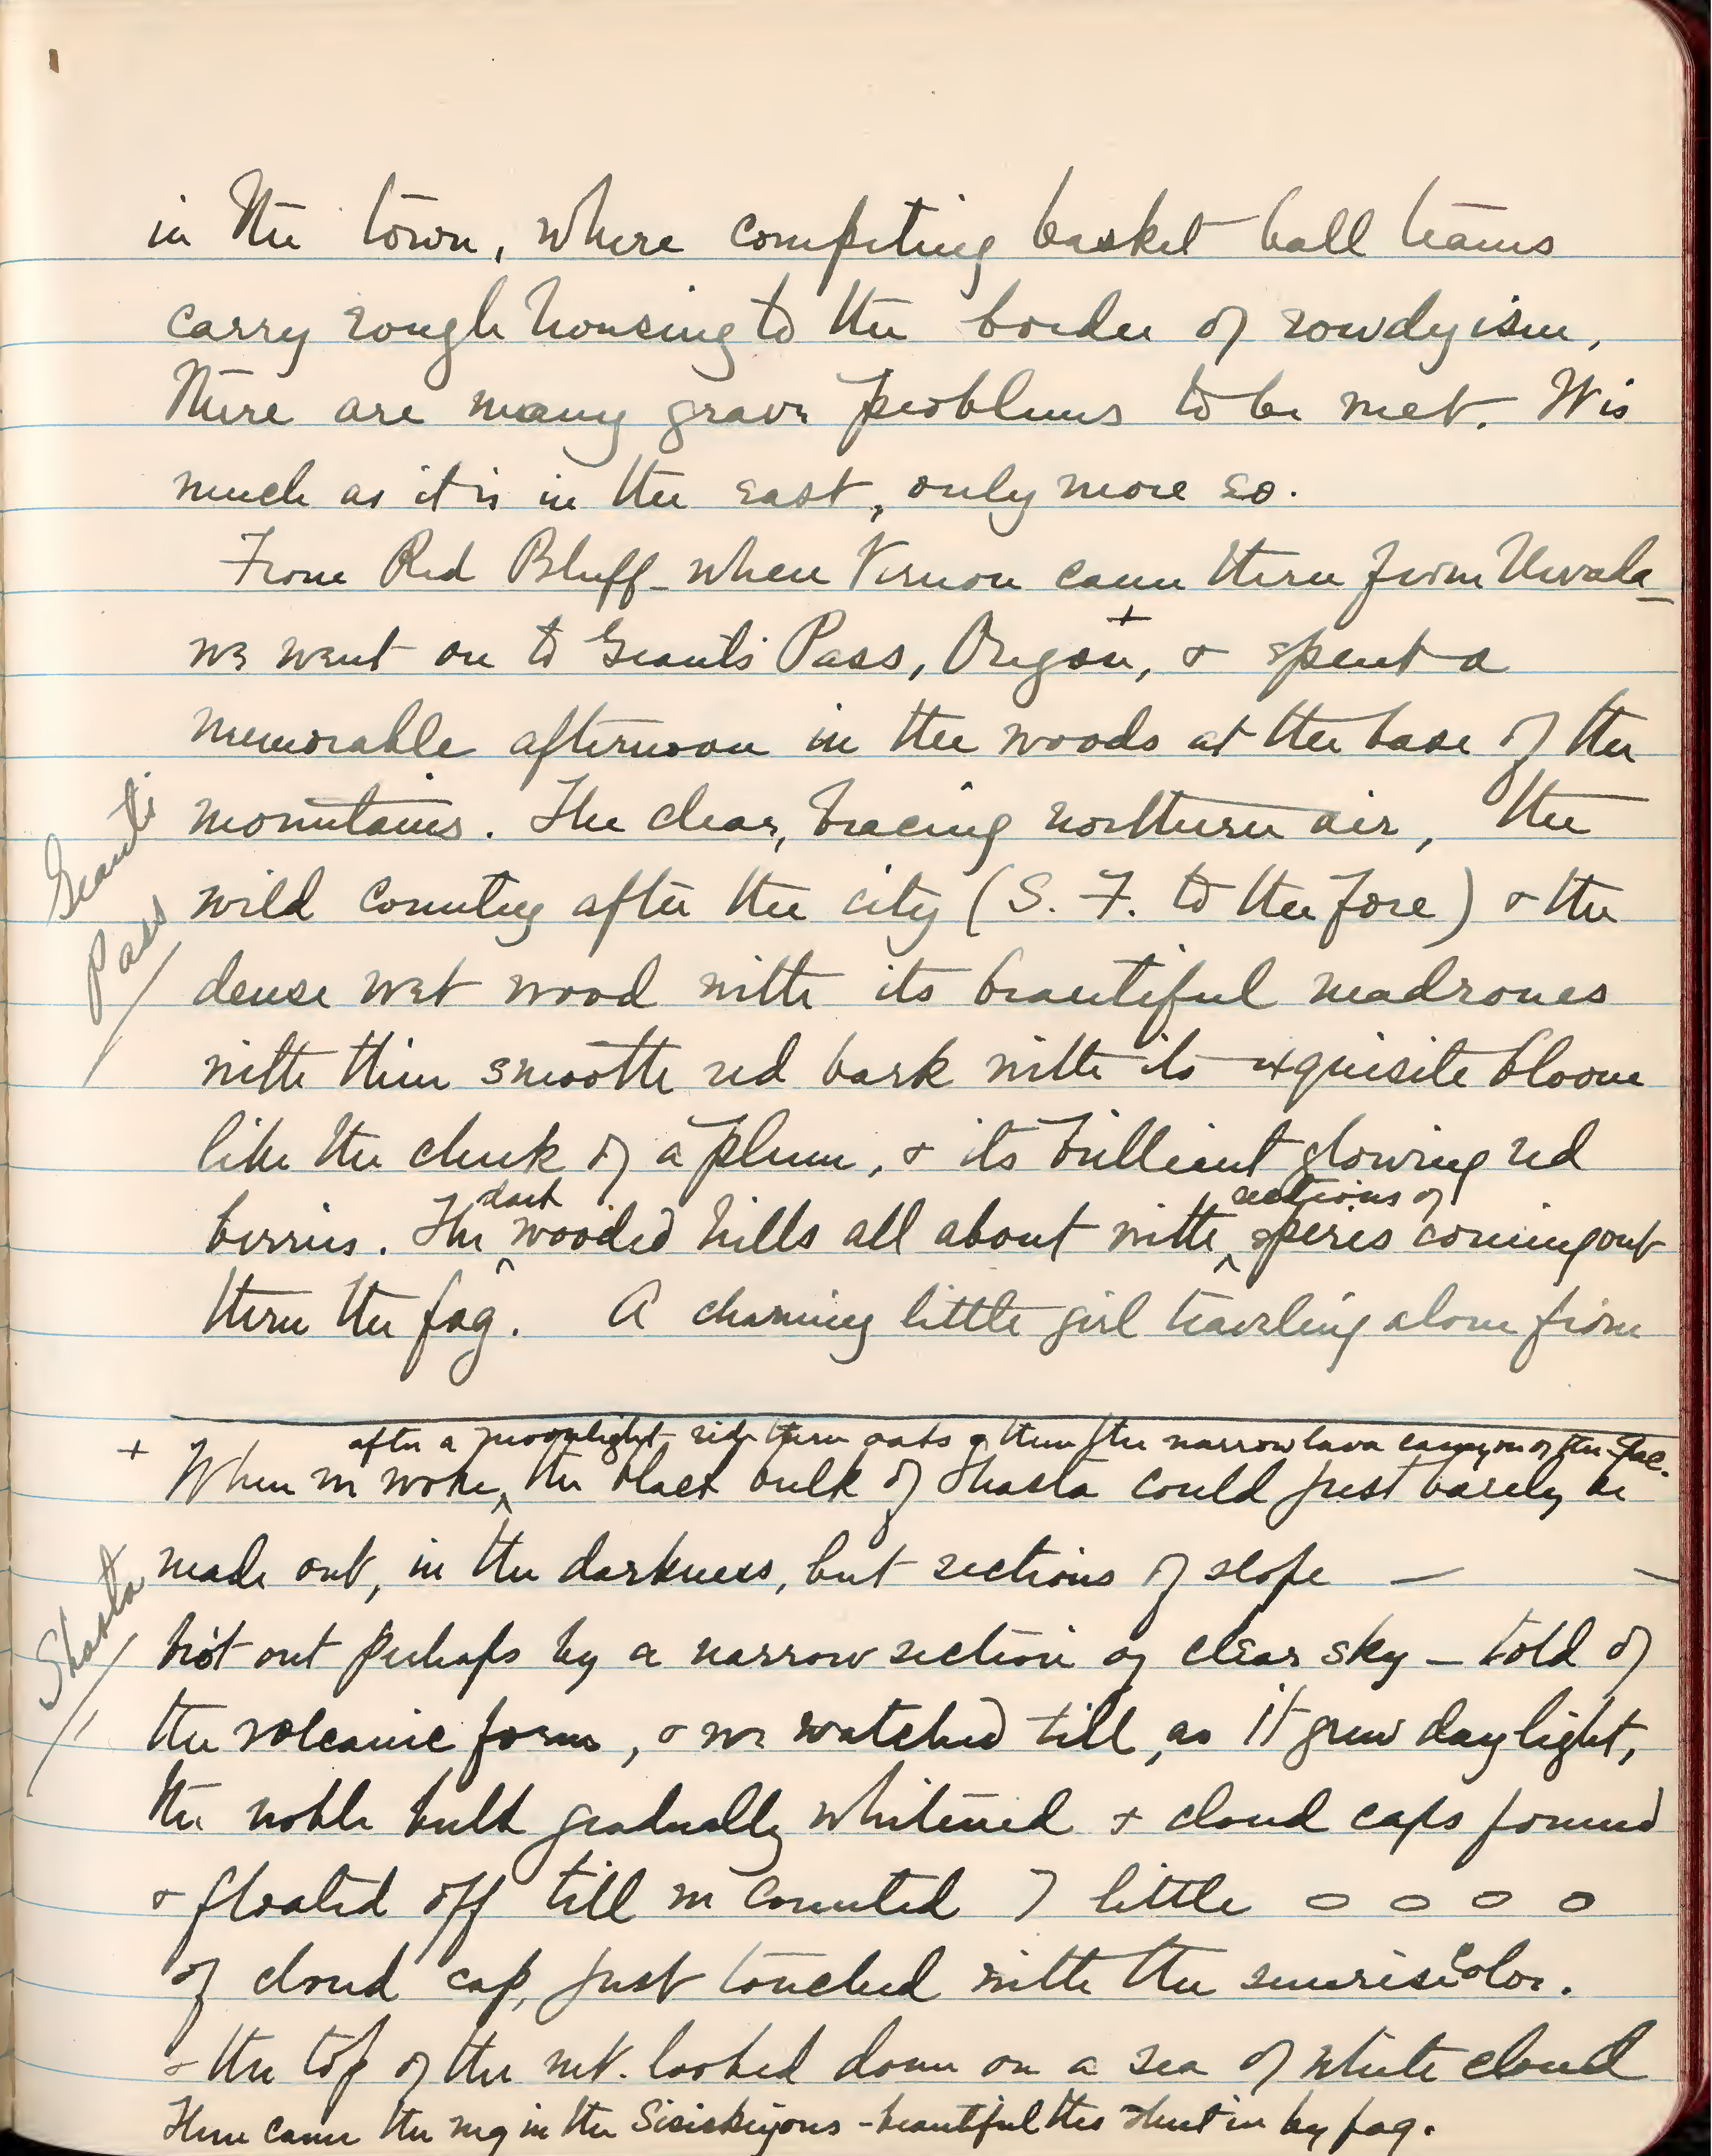 in the town, where competing basket ball teams
carry rough housing to the border of rowdyism,
there are many grave problems to be met. It is
much as it is in the east, only more so.
From Red Bluff - when Vernon came thru from Nevada -
we went on to Grants Pass, Oregon,+ & spent a
memorable afternoon in the woods at the base of the
mountains. The clear, bracing northern air, the
Grants
Pass
wild country after the city (S. F. to the fore) & the
dense wet wood with its beautiful madrones
with their smooth red bark with its exquisite bloom
like the cheek of a plum, & its brilliant glowing red
dark sections of
berries. The ^ wooded hills all about with ^ spires coming out
thru the fog. A charming little girl traveling alone from
after a moonlight ride thru oaks & thru the narrow lava canyon of the Sac.
+ When we woke, ^ the black bulk of Shasta could just barely be
made out, in the darkness, but sections of slope — —
Shasta
brot out perhaps by a narrow section of clear sky — told of
the volcanic form, & we watched till, as it grew daylight,
the noble bulk gradually whitened & cloud caps formed
& floated off till we counted 7 little o o o o
of cloud cap, just touched with the sunrise color.
& the top of the mt. looked down on a sea of white cloud
Then came the mg in the Sisiskiyous - beautiful tho shut in by fog.